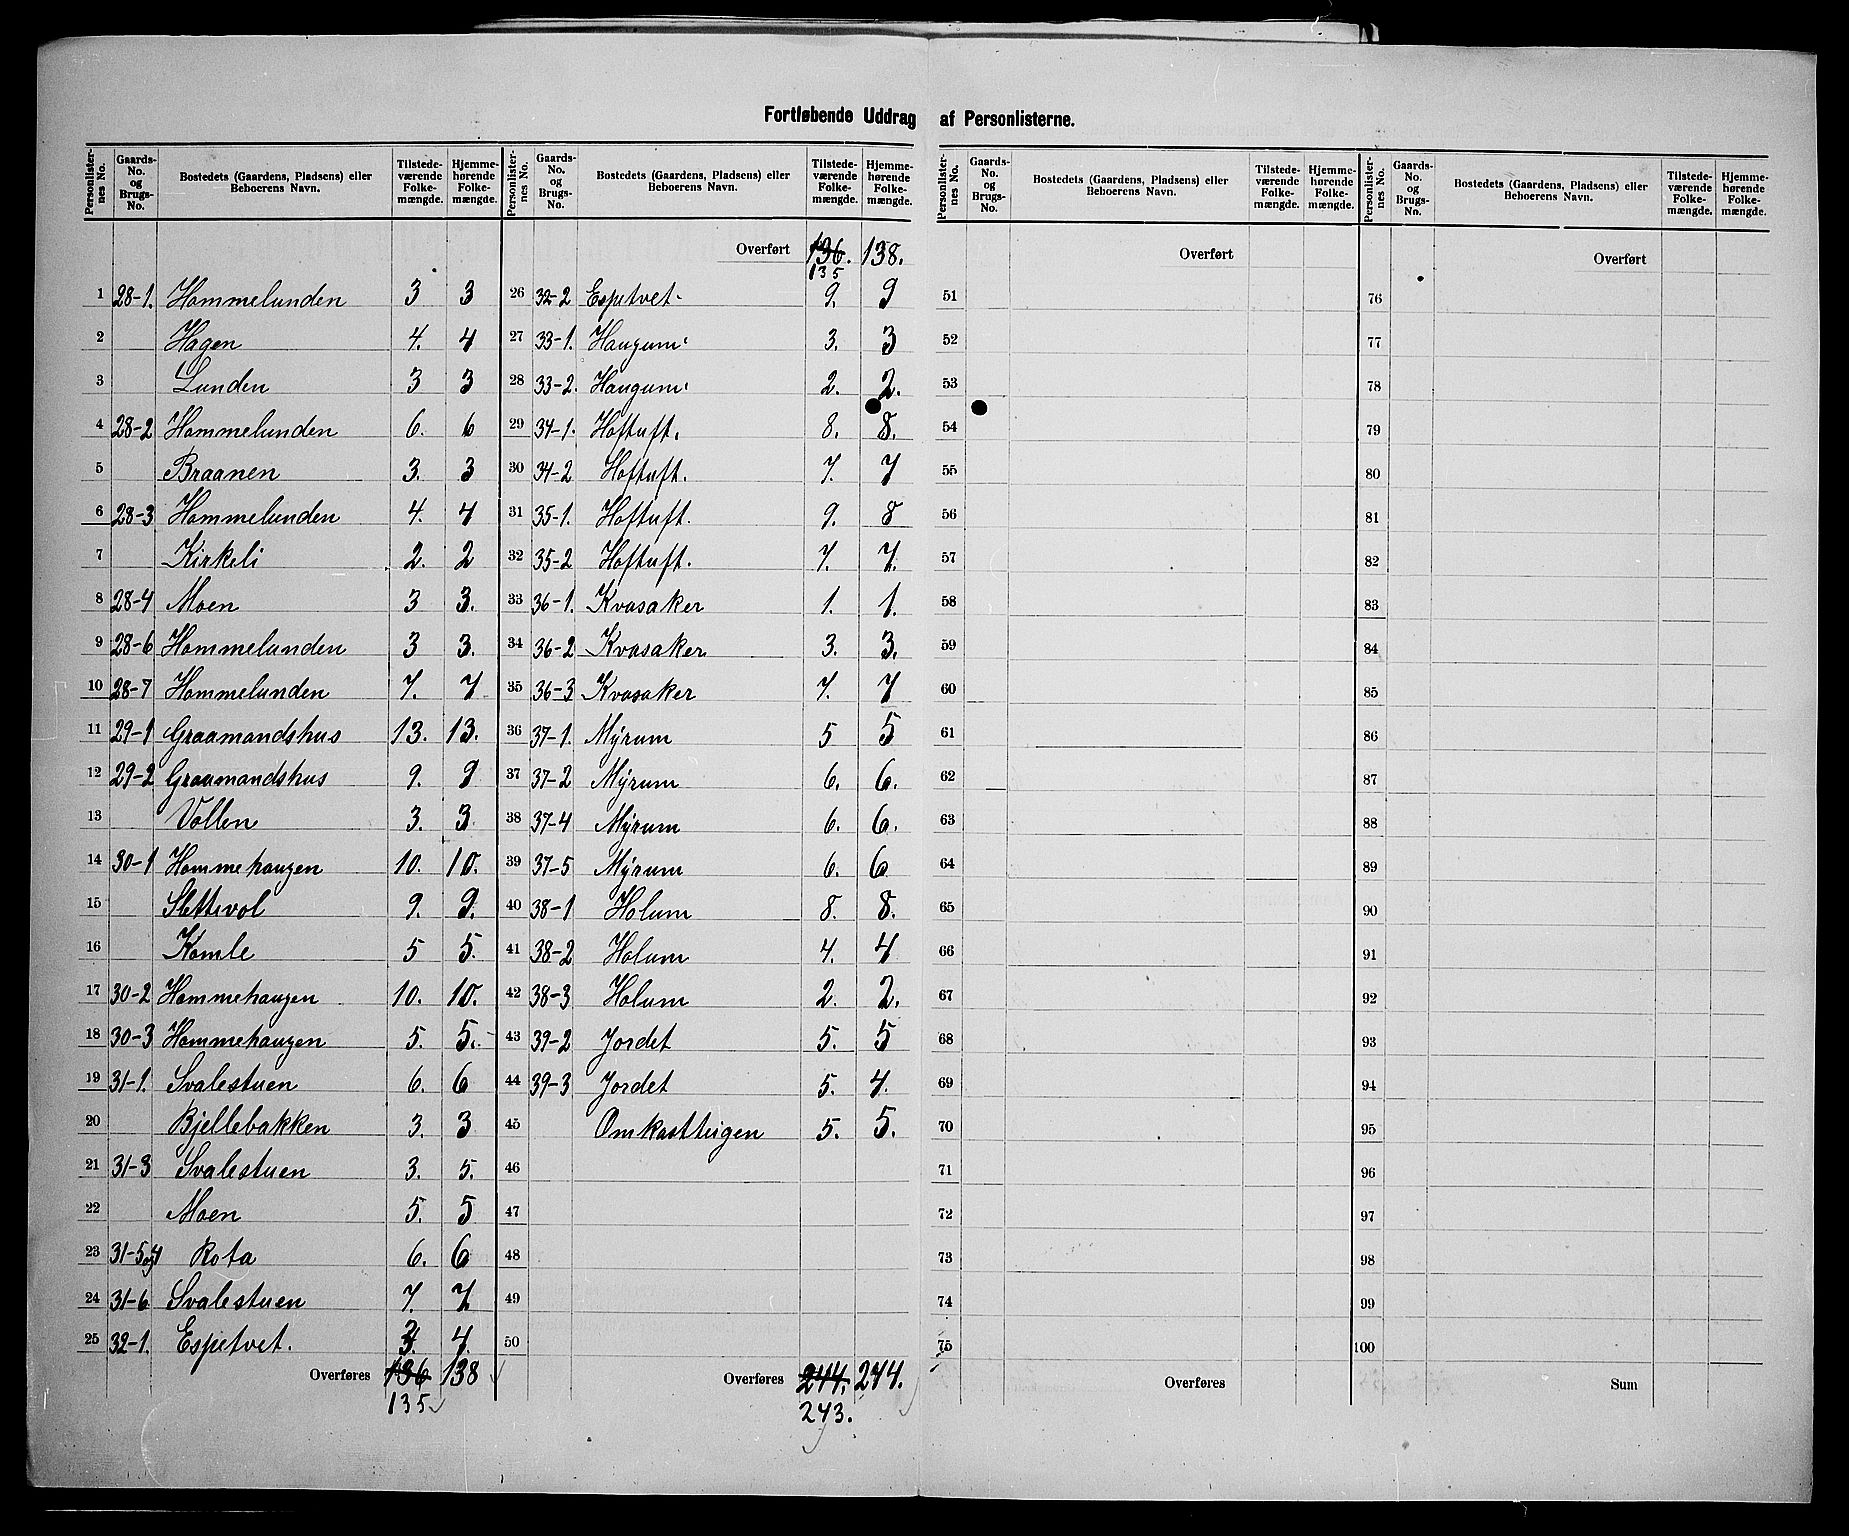 Fortløbende Uddrag af Personlisterne.
Personlister-nes No. Gaards-No. og Brugs-No. Bostedets (Gaardens, Pladsens) eller Beboerens Navn. Tilstede-værende Folke-mængde. Hjemme-hørende Folke-mængde.
1 28-1. Hommelunden 3 3
2 Hagen 4. 4
3 Lunden 3 3
4 28-2 Hommelunden 6. 6
5 Braanen 3. 3
6 28-3 Hommelunden 4. 4
7 Kirkeli 2. 2
8 28-4 Moen 3 3.
9 28-6 Hommelunden 3 3.
10 28-7 Hommelunden 7. 7
11 29-1 Graamandshus 13. 13.
12 29-2 Graamandshus 9. 9
13 Vollen 3. 3
14 30-1 Hommehaugen 10. 10.
15 Slettevol 9. 9.
16 Komle 5 5.
17 30-2 Hommehaugen 10. 10.
18 30-3 Hommehaugen 5. 5.
19 31-1. Svalestuen 6. 6
20 Bjellebakken 3. 3
21 31-3 Svalestuen 3. 5.
22 Moen 5. 5
23 31-5og4 Rota 6. 6
24 31-6 Svalestuen 7. 7
25 32-1. Espetvet. 3. 4.
Overføres 136 138
135
Personlister-nes No. Gaards-No. og Brugs-No. Bostedets (Gaardens, Pladsens) eller Beboerens Navn. Tilstede-værende Folke-mængde. Hjemme-hørende Folke-mængde.
Overført 136. 138.
135
26 32-2 Espetvet. 9. 9
27 33-1. Haugum. 3. 3
28 33-2. Haugum. 2. 2.
29 34-1. Hoftuft. 8. 8.
30 34-2 Hoftuft. 7. 7
31 35-1. Hoftuft. 9. 8
32 35-2 Hoftuft. 7. 7.
33 36-1. Kvasaker 1. 1.
34 36-2 Kvasaker 3. 3.
35 36-3 Kvasaker 7. 7
36 37-1. Myrum 5 5
37 37-2 Myrum 6. 6.
38 37-4 Myrum 6. 6.
39 37-5 Myrum 6. 6
40 38-1 Holum 8. 8.
41 38-2 Holum 4. 4
42 38-3 Holum 2. 2.
43 39-2 Jordet 5. 5
44 39-3 Jordet 5. 4.
45 Omkastteigen 5. 5.
46
47
48
49
50
Overføres 244. 244.
243.
Personlister-nes No. Gaards-No. og Brugs-No. Bostedets (Gaardens, Pladsens) eller Beboerens Navn. Tilstede-værende Folke-mængde. Hjemme-hørende Folke-mængde.
Overført
51
52
53
54
55
56
57
58
59
60
61
62
63
64
65
66
67
68
69
70
71
72
73
74
75
Overføres
Personlister-nes No. Gaards-No. og Brugs-No. Bostedets (Gaardens, Pladsens) eller Beboerens Navn. Tilstede-værende Folke-mængde. Hjemme-hørende Folke-mængde.
Overført
76
77
78
79
80
81
82
83
84
85
86
87
88
89
90
91
92
93
94
95
96
97
98
99
100
Sum